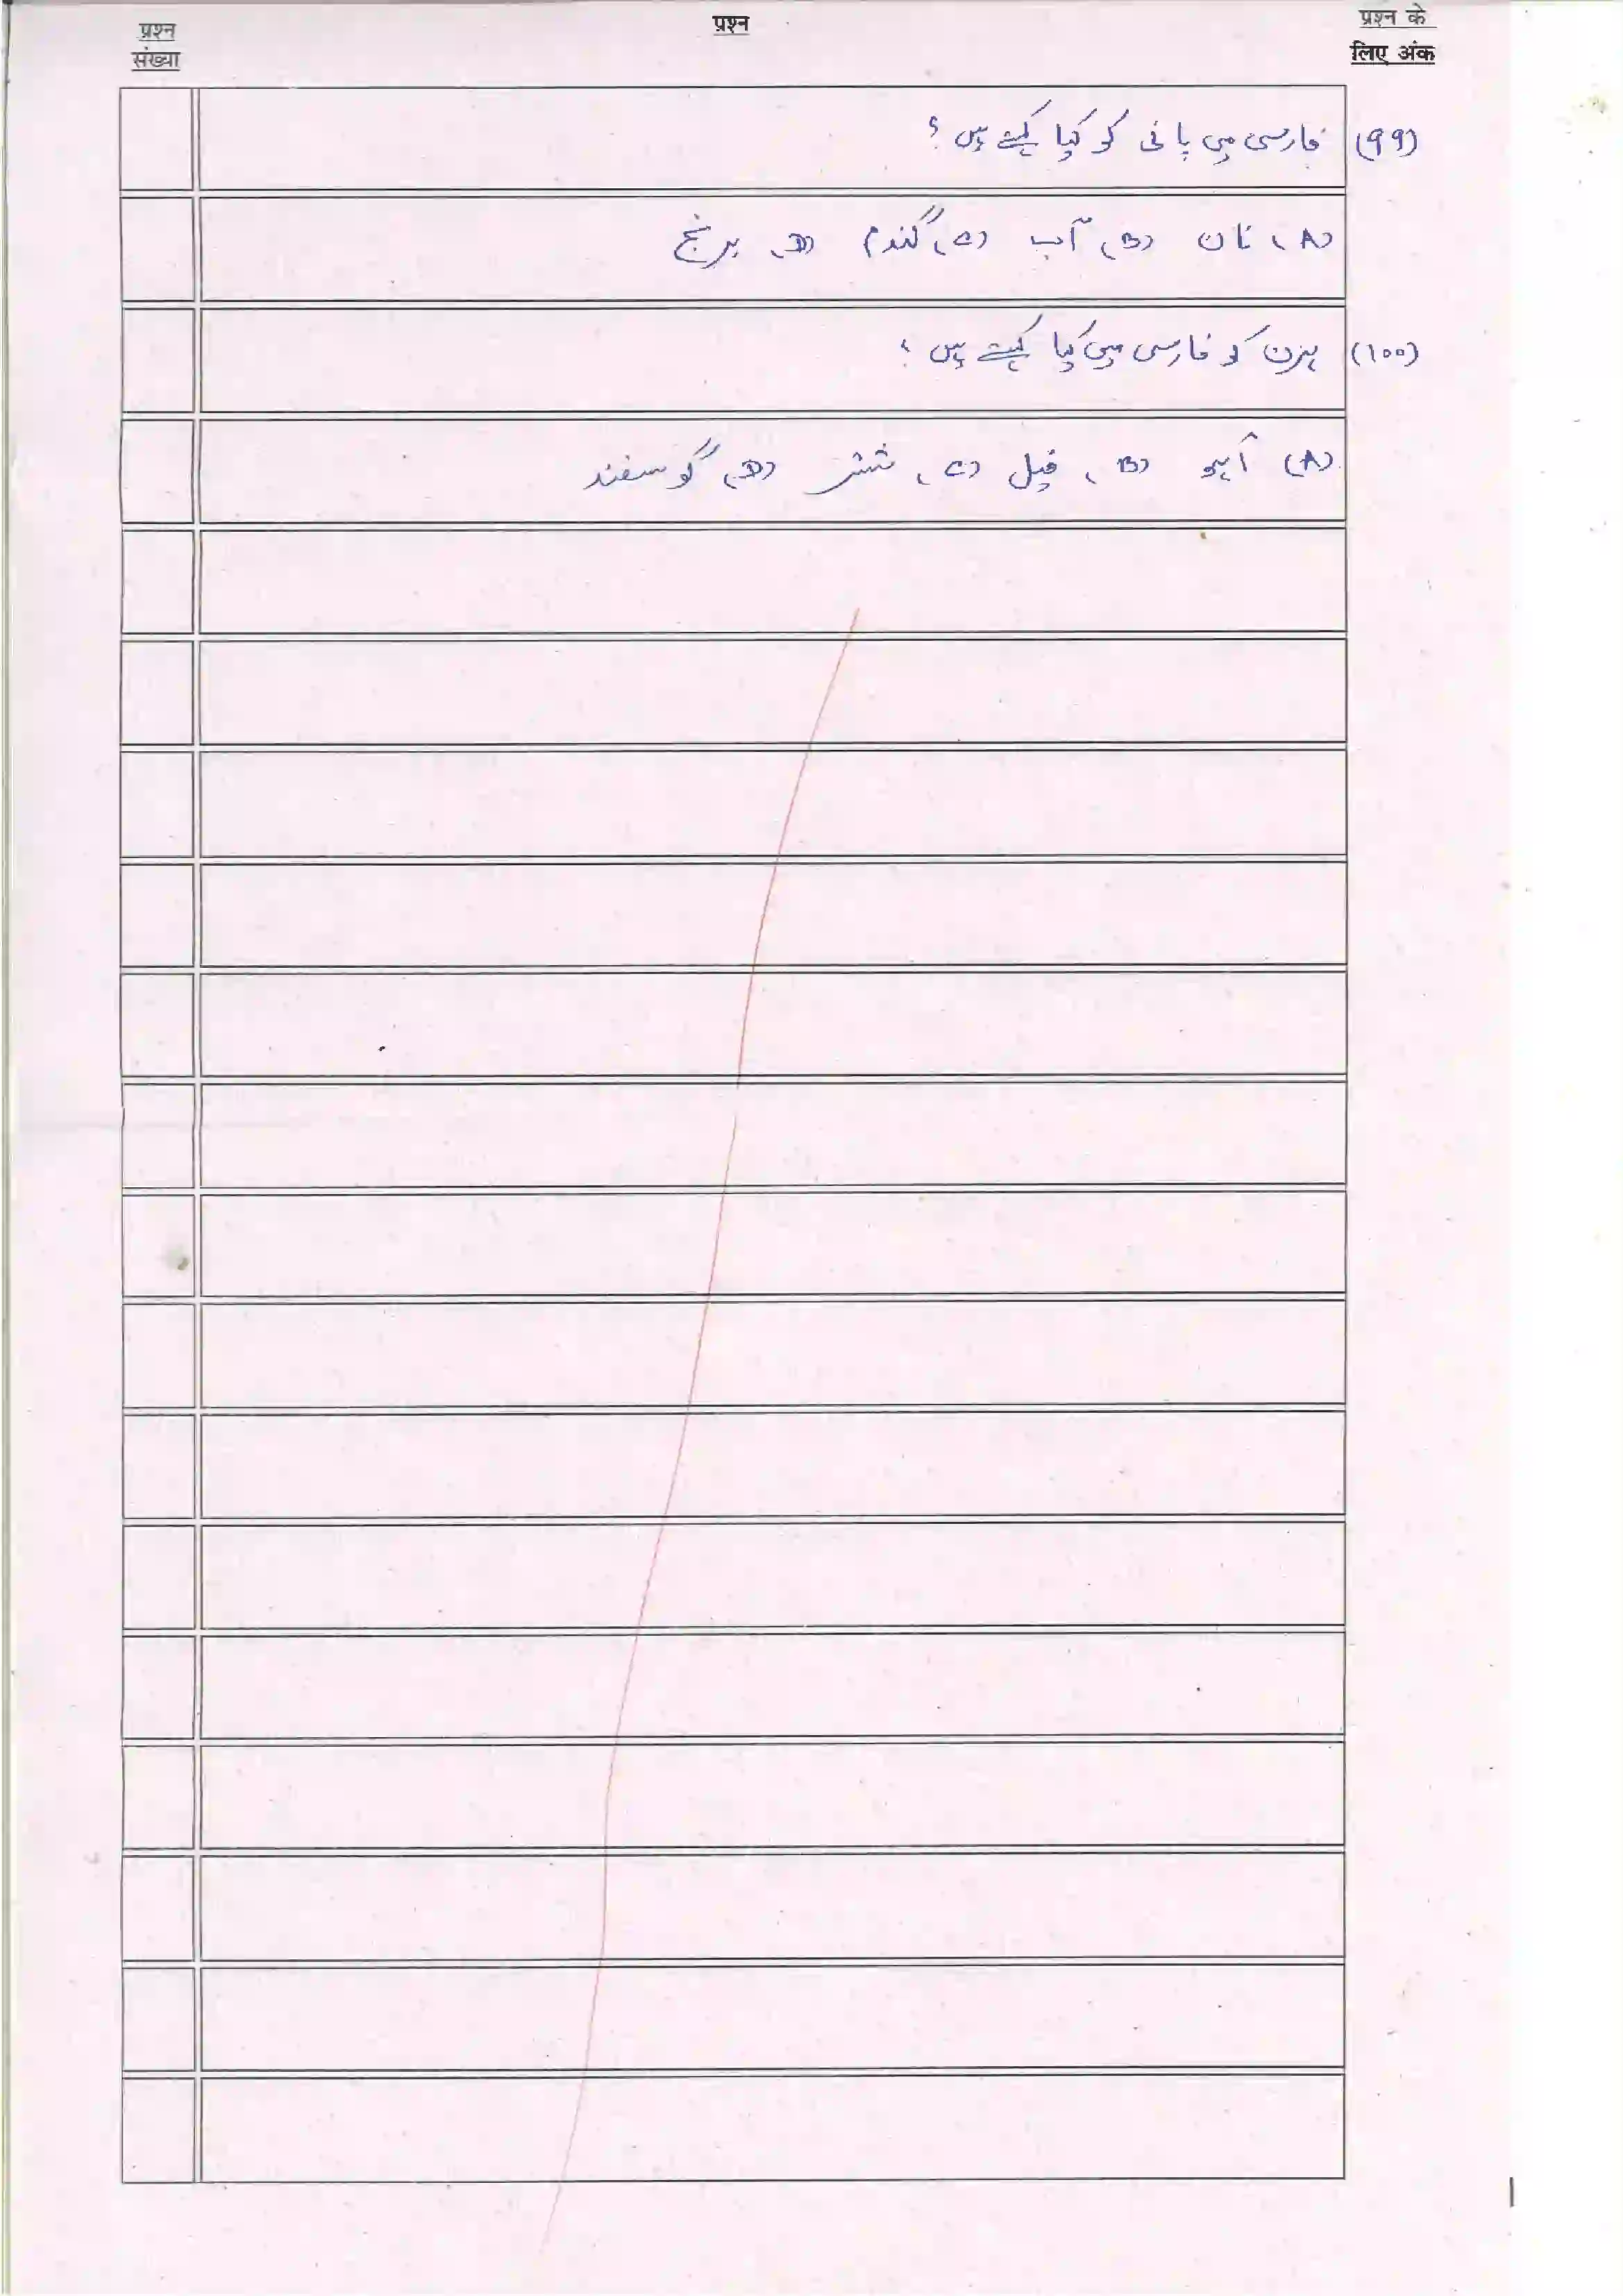 प्रश्न संख्या प्रश्न प्रश्न के लिए अंक
(99) فارسی میں پانی کو کیا کہتے ہیں ؟
(A) نان (B) آب (C) گندم (D) برنج
(100) ہرن کو فارسی میں کیا کہتے ہیں ؟
(A) آہو (B) فیل (C) شتر (D) گوسفند